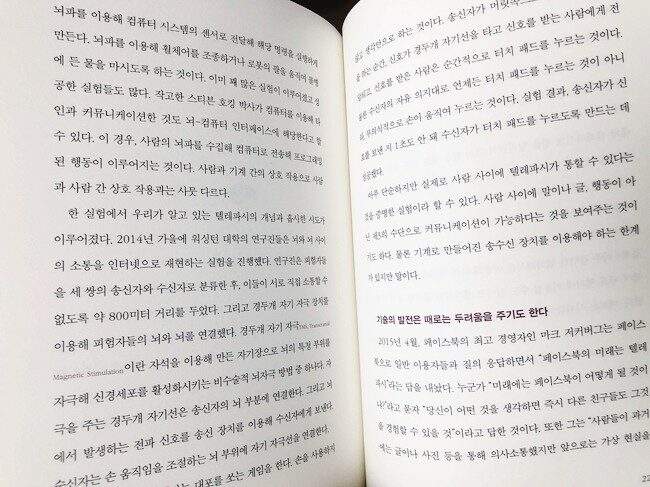 뇌파를 이용해 컴퓨터 시스템의 센서로 전달해 해당 명령을 실행하게
만든다. 뇌파를 이용해 휠체어를 조종하거나 로봇의 팔을 움직여 물병
에 든 물을 마시도록 하는 것이다. 이미 꽤 많은 실험이 이루어졌고 성
공한 실험들도 많다. 작고한 스티븐 호킹 박사가 컴퓨터를 이용해 타
인과 커뮤니케이션한 것도 뇌-컴퓨터 인터페이스에 해당한다고 할
수 있다. 이 경우, 사람의 뇌파를 수집해 컴퓨터로 전송해 프로그래밍
된 행동이 이루어지는 것이다. 사람과 기계 간의 상호 작용으로 사람
과 사람 간 상호 작용과는 사뭇 다르다.
한 실험에서 우리가 알고 있는 텔레파시의 개념과 흡사한 시도가
이루어졌다. 2014년 가을에 워싱턴 대학의 연구진들은 뇌와 뇌 사이
의 소통을 인터넷으로 재현하는 실험을 진행했다. 연구진은 피험자들
을 세 쌍의 송신자와 수신자로 분류한 후, 이들이 서로 직접 소통할 수
없도록 약 800미터 거리를 두었다. 그리고 경두개 자기 자극 장치를
이용해 피험자들의 뇌와 뇌를 연결했다. 경두개 자기 자극TMS, Transcranial
Magnetic Stimulation이란 자석을 이용해 만든 자기장으로 뇌의 특정 부위를
자극해 신경세포를 활성화시키는 비수술적 뇌자극 방법 중 하나다. 자
극을 주는 경두개 자기선을 송신자의 뇌 부분에 연결한다. 그리고 뇌
에서 발생하는 전파 신호를 송신 장치를 이용해 수신자에게 보낸다.
수신자는 손 움직임을 조절하는 뇌 부위에 자기 자극선을 연결한다.
대포를 쏘는 게임을 한다. 손을 사용하지
않고 생각만으로 하는 것이다. 송신자가
하는 순간, 신호가 경두개 자기선을 타고 신호를 받는 사람에게 전
되고, 신호를 받은 사람은 순간적으로 터치 패드를 누르는 것이다.
물론 수신자의 자유 의지대로 언제든 터치 패드를 누르는 것이 아니
라, 무의식적으로 손이 움직여 누르는 것이다. 실험 결과, 송신자가 신
호를 보낸 지 1초도 안 돼 수신자가 터치 패드를 누르도록 만드는 데
성공했다.
아주 단순하지만 실제로 사람 사이에 텔레파시가 통할 수 있다는
것을 증명한 실험이라 할 수 있다. 사람 사이에 말이나 글, 행동이 아
닌 제3의 수단으로 커뮤니케이션이 가능하다는 것을 보여주는 것이
기도 하다. 물론 기계로 만들어진 송수신 장치를 이용해야 하는 한계
가 있지만 말이다.
기술의 발전은 때로는 두려움을 주기도 한다
2015년 4월, 페이스북의 최고 경영자인 마크 저커버그는 페이스
북으로 일반 이용자들과 질의 응답하면서 “페이스북의 미래는 텔레
파시”라는 답을 내놨다. 누군가 “미래에는 페이스북이 어떻게 될 것이
냐?”라고 묻자 “당신이 어떤 것을 생각하면 즉시 다른 친구들도 그것
을 경험할 수 있을 것”이라고 답한 것이다. 또한 그는 “사람들이 과거
에는 글이나 사진 등을 통해 의사소통했지만 앞으로는 가상 현실을